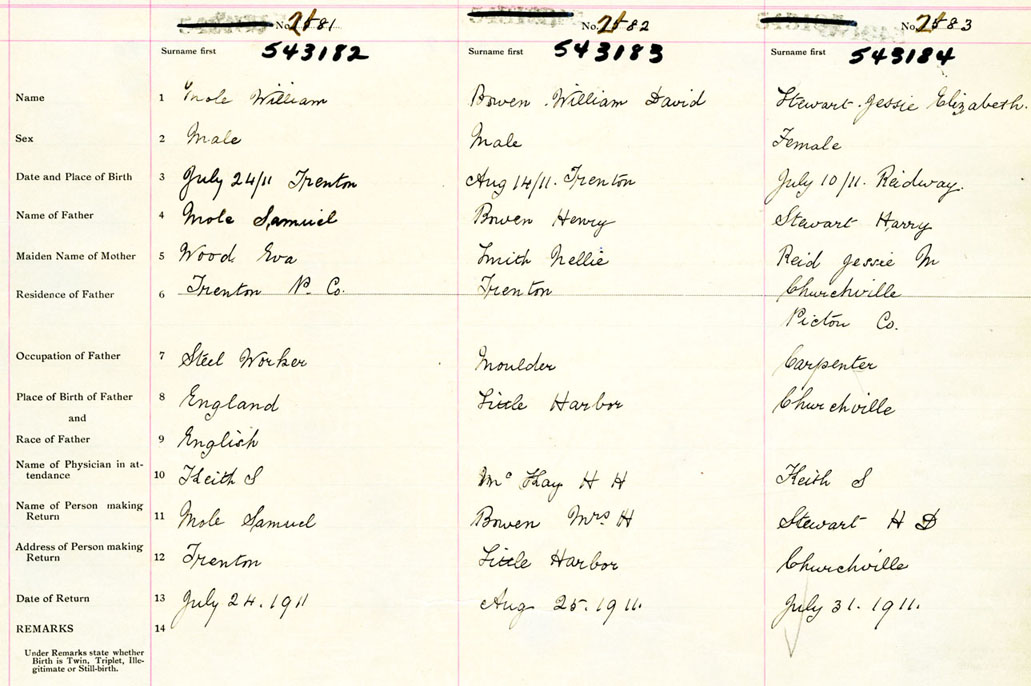 No. 2581 No. 2582 No. 2583
Surname first 543182 Surname first 543183 Surname first 543184
Name 1 Mole William Bowen William David Stewart Jessie Elizabeth
Sex 2 Male Male Female
Date and Place of Birth 3 July 24/11 Trenton Aug 14/11. Trenton July 10/11. Reidway.
Name of Father 4 Mole Samuel Bowen Henry Stewart Harry
Maiden Name of Mother 5 Wood Eva Smith Nellie Reid Jessie M
Residence of Father 6 Trenton P. Co. Trenton Churchville
Picton Co.
Occupation of Father 7 Steel Worker Moulder Carpenter
Place of Birth of Father 8 England Little Harbor Churchville
and
Race of Father 9 English
Name of Physician in at-
tendance 10 Keith S Mc Kay H H Keith S
Name of Person making
Return 11 Mole Samuel Bowen Mrs H Stewart H D
Address of Person making
Return 12 Trenton Little Harbor Churchville
Date of Return 13 July 24. 1911 Aug 25. 1911. July 31. 1911.
REMARKS 14
Under Remarks state whether
Birth is Twin, Triplet, Ille-
gitimate or Still-birth.